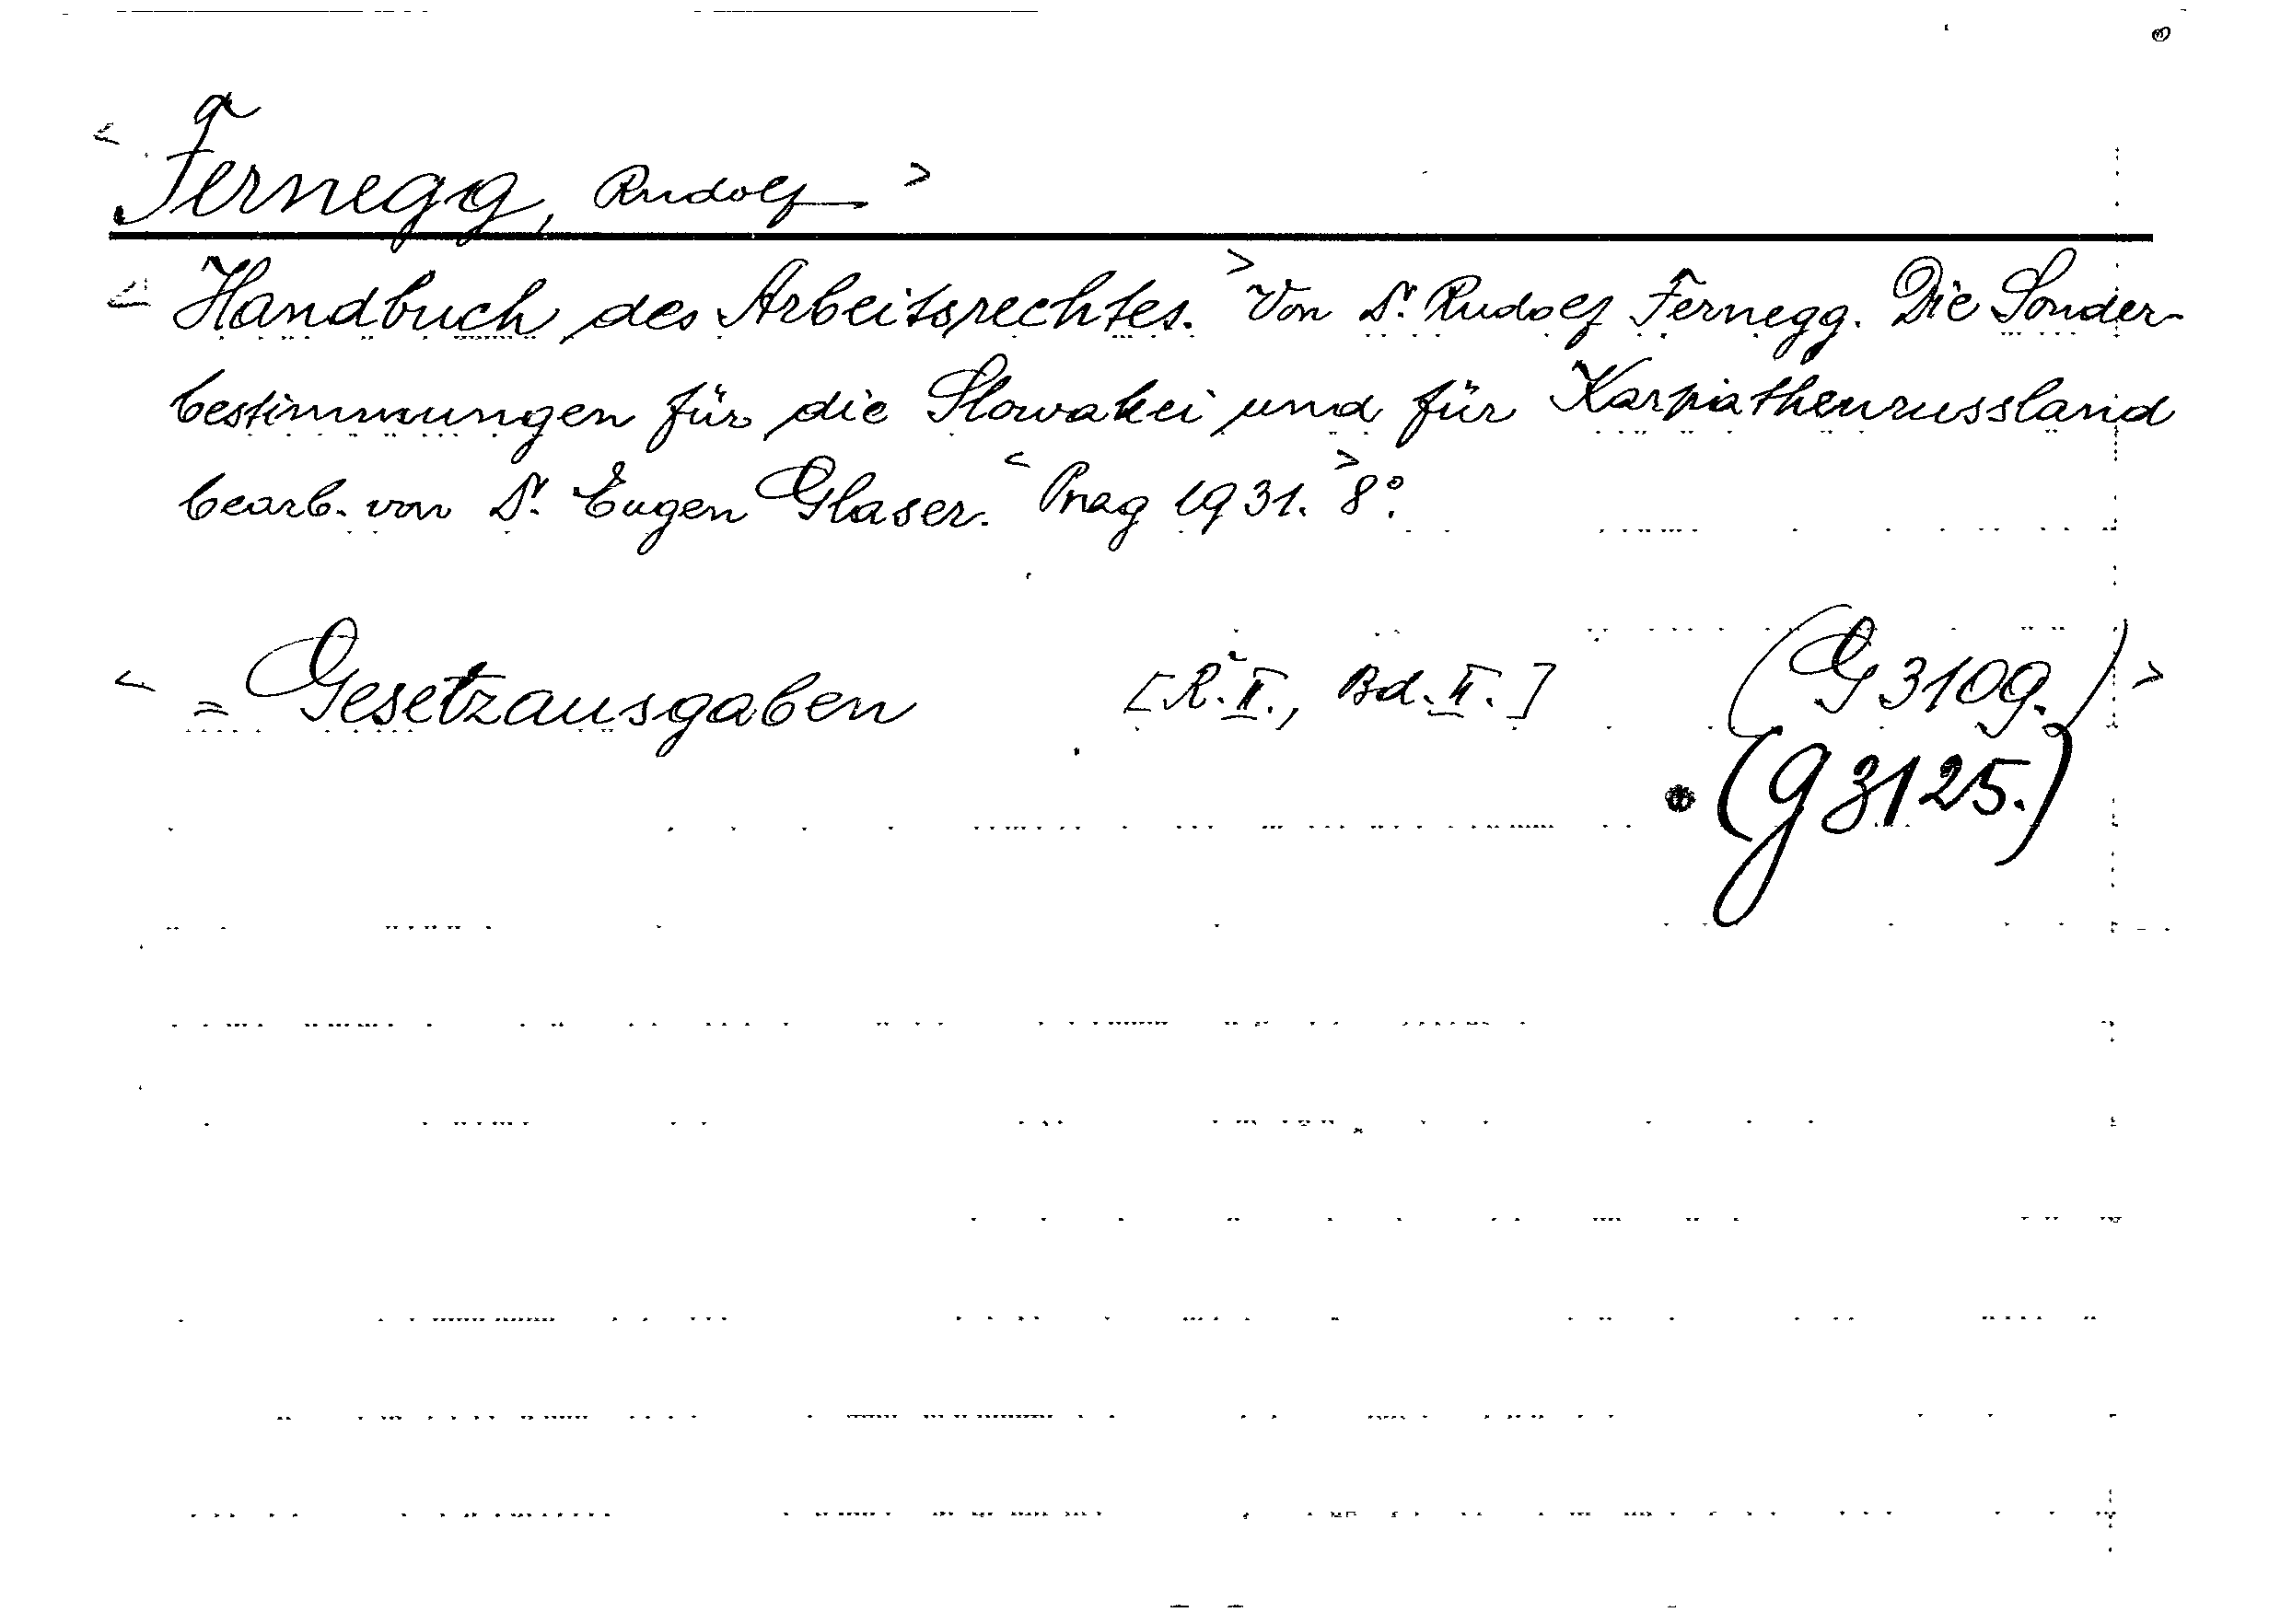 < Fernegg, Rudolf >
< Handbuch des Arbeitsrechtes. > Von Dr. Rudolf Fernegg. Die Sonder-
bestimmungen für die Slowakei und für Karpathenrussland
bearb. von Dr. Eugen Glaser. < Prag 1931. > 8°.
< = Gesetzausgaben [R. II., Bd. II.] (G 3109.) >
(G 3125.)